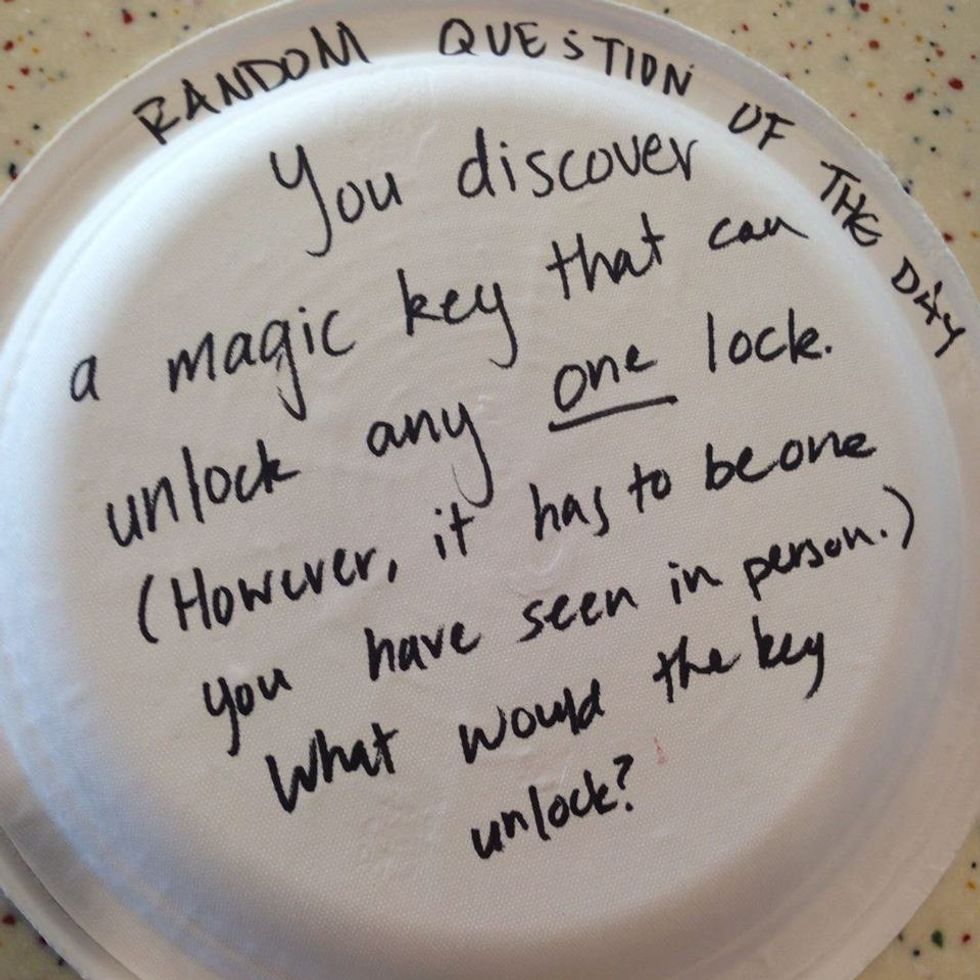 RANDOM QUESTION OF THE DAY
You discover
a magic key that can
unlock any one lock.
(However, it has to be one
you have seen in person.)
What would the key
unlock?